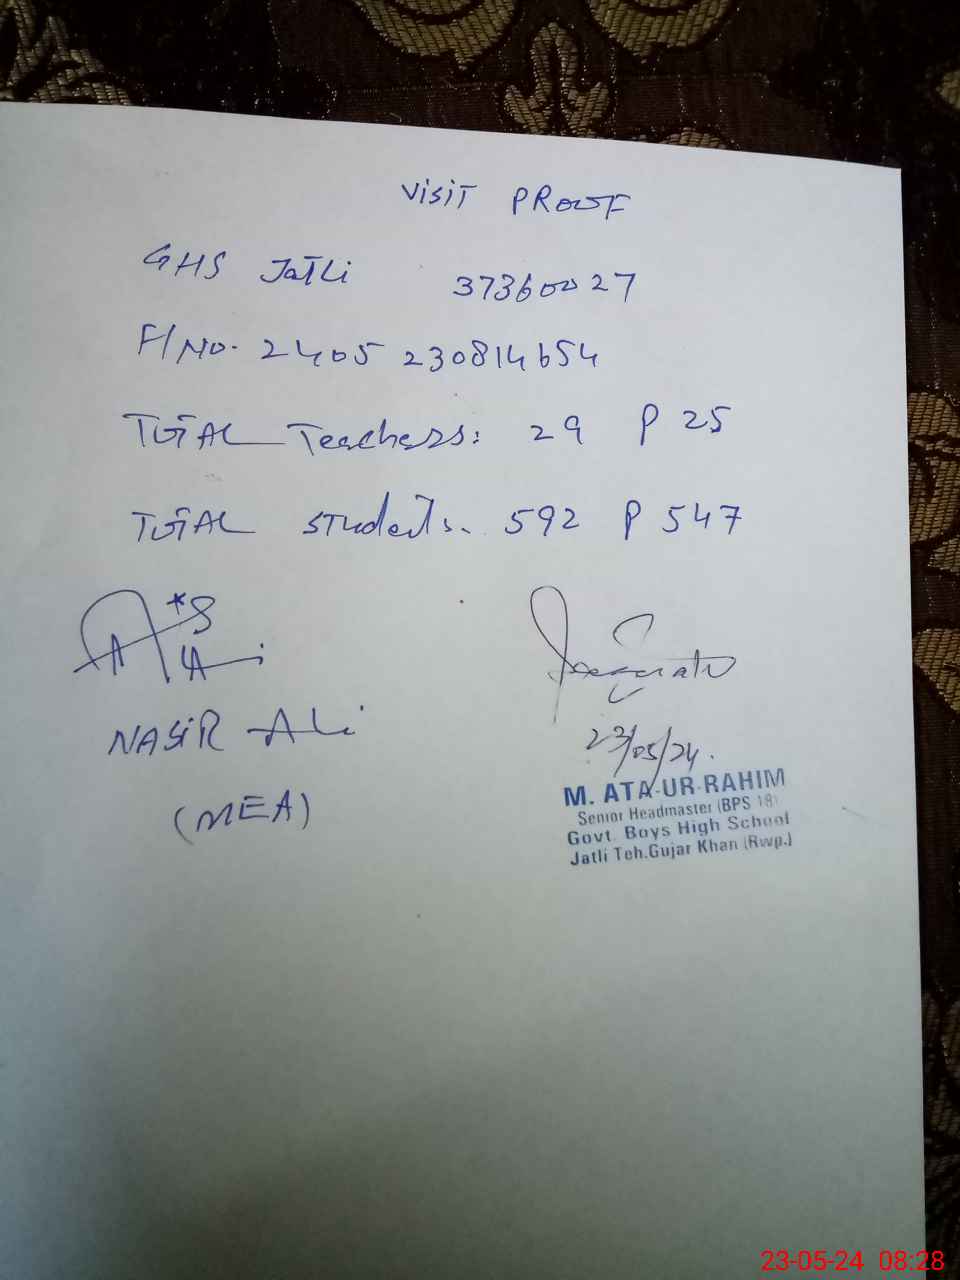 VISIT PROOF
GHS JatLi 37360027
F/No. 2405 230814654
TOTAL Teachers: 29 P 25
TOTAL Students. 592 P 547
NASiR ALi
(MEA)
23/05/24.
M. ATA-UR-RAHIM
Senior Headmaster (BPS 18)
Govt. Boys High School
Jatli Teh.Gujar Khan (Rwp.)
23-05-24 08:28